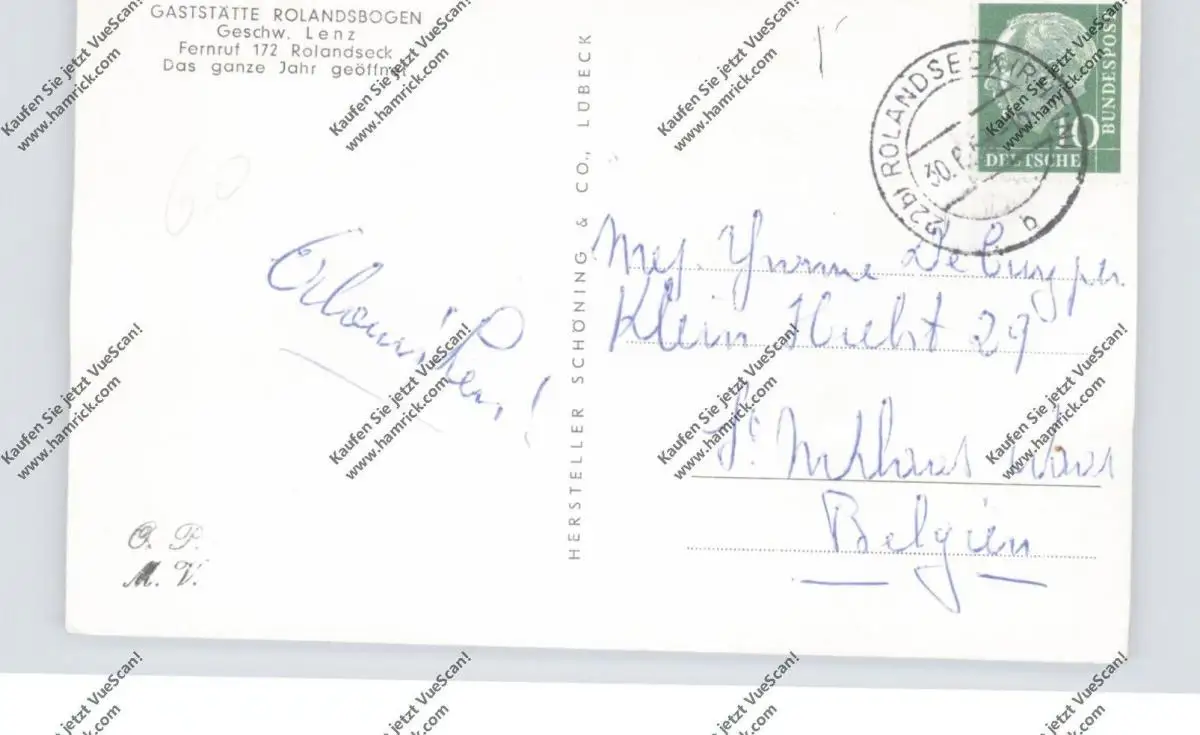 GASTSTÄTTE ROLANDSBOGEN
Geschw. Lenz
Fernruf 172 Rolandseck
Das ganze Jahr geöffnet
60
O. P.
M. V.
HERSTELLER SCHÖNING & CO., LÜBECK
(22b) ROLANDSECK
30.
b
10
DEUTSCHE
BUNDESPOST
Mej. Yvonne De Cuyper
Klein Hulst 29
St Niklaas Waas
Belgien
Kaufen Sie jetzt VueScan!
www.hamrick.com